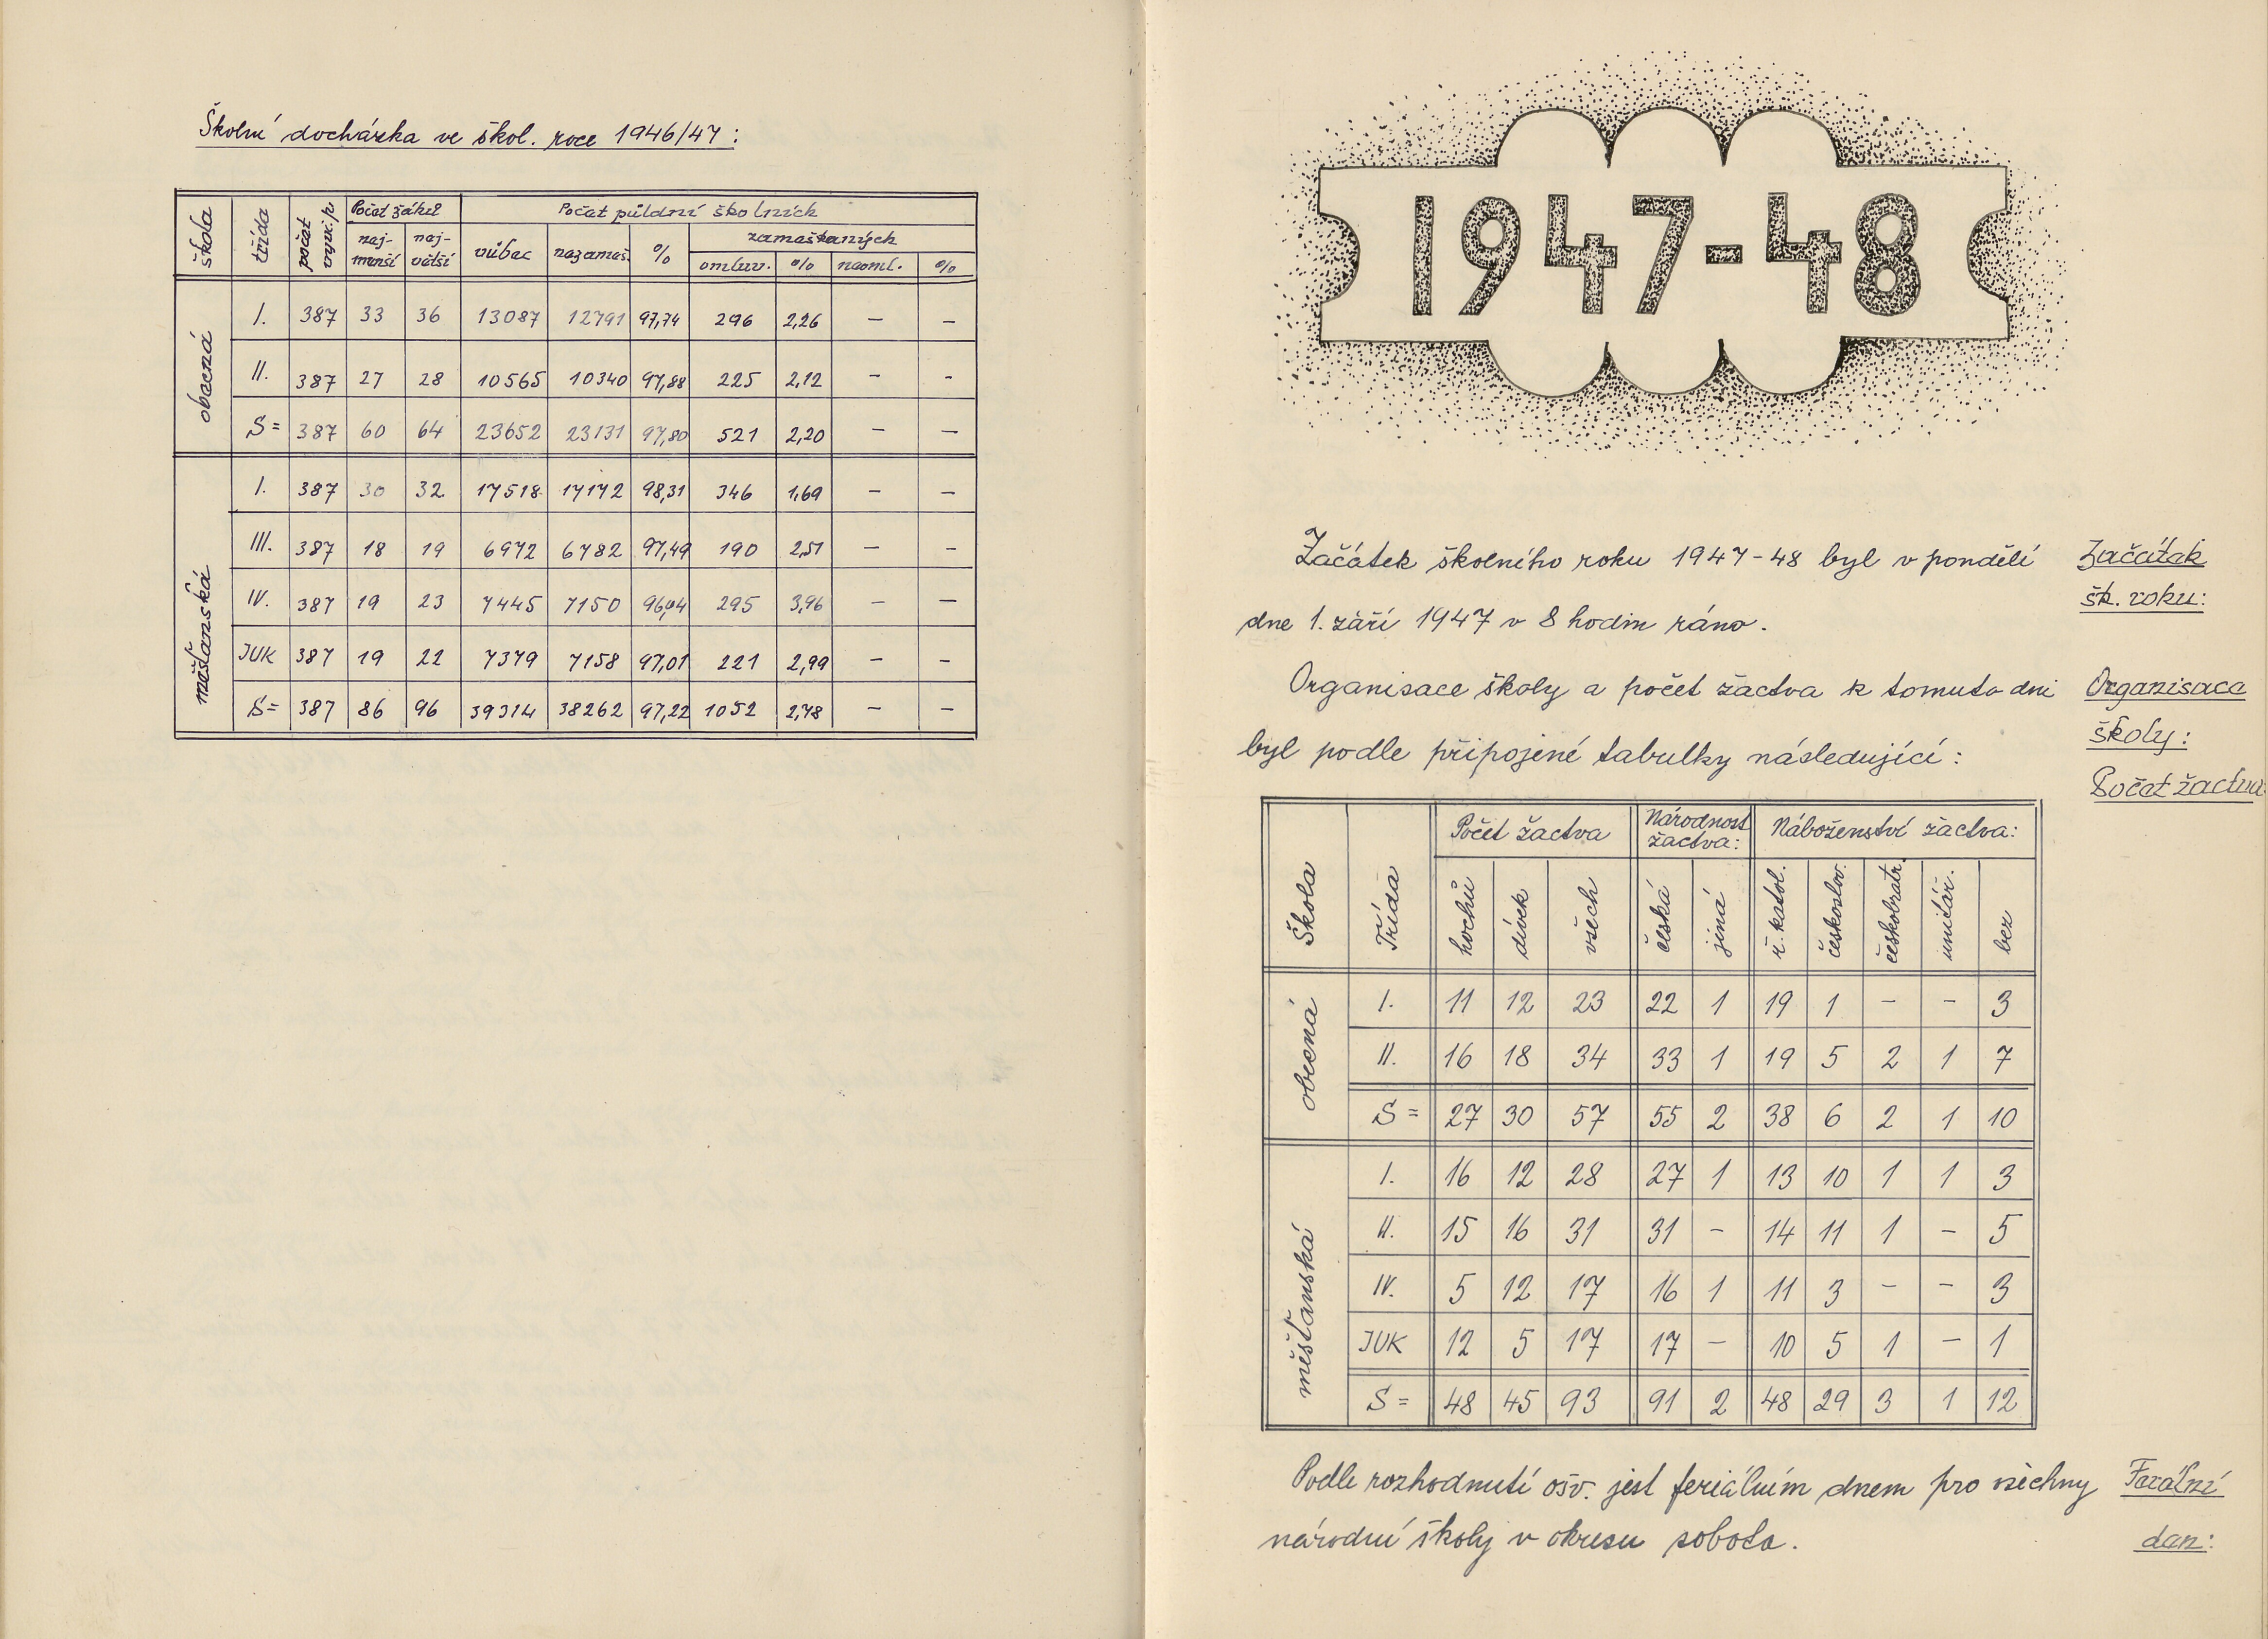 Školní docházka ve škol. roce 1946/47:
škola třída počet vyuč.p. Počet žáků Počet půldní školních
nej-menší nej-větší vůbec nezameš. % zameškaných
omluv. % neoml. %
obecná
I. 387 33 36 13087 12791 97,74 296 2,26 — —
II. 387 27 28 10565 10340 97,88 225 2,12 — -
S= 387 60 64 23652 23131 97,80 521 2,20 — —
měšťanská
I. 387 30 32 17518 17172 98,31 346 1,69 — —
III. 387 18 19 6972 6782 97,49 190 2,51 — —
IV. 387 19 23 7445 7150 96,04 295 3,96 — —
JUK 387 19 22 7379 7158 97,01 221 2,99 — —
S= 387 86 96 39314 38262 97,22 1052 2,78 — —
1947-48
Začátek školního roku 1947-48 byl v pondělí
dne 1. září 1947 v 8 hodin ráno.
Začátek
šk. roku:
Organisace školy a počet žactva k tomuto dni
byl podle připojené tabulky následující:
Organisace
školy:
Počet žactva
Škola Třída Počet žactva Národnost žactva: Náboženství žactva:
hochů dívek všech česká jiná ř. katol. českoslov. českobratr. unitář. bez
obecná
I. 11 12 23 22 1 19 1 — — 3
II. 16 18 34 33 1 19 5 2 1 7
S= 27 30 57 55 2 38 6 2 1 10
měšťanská
I. 16 12 28 27 1 13 10 1 1 3
II. 15 16 31 31 — 14 11 1 — 5
IV. 5 12 17 16 1 11 3 — — 3
JUK 12 5 17 17 — 10 5 1 — 1
S= 48 45 93 91 2 48 29 3 1 12
Podle rozhodnutí ošv. jest feriálním dnem pro všechny
národní školy v okresu sobota.
Feriální
den: